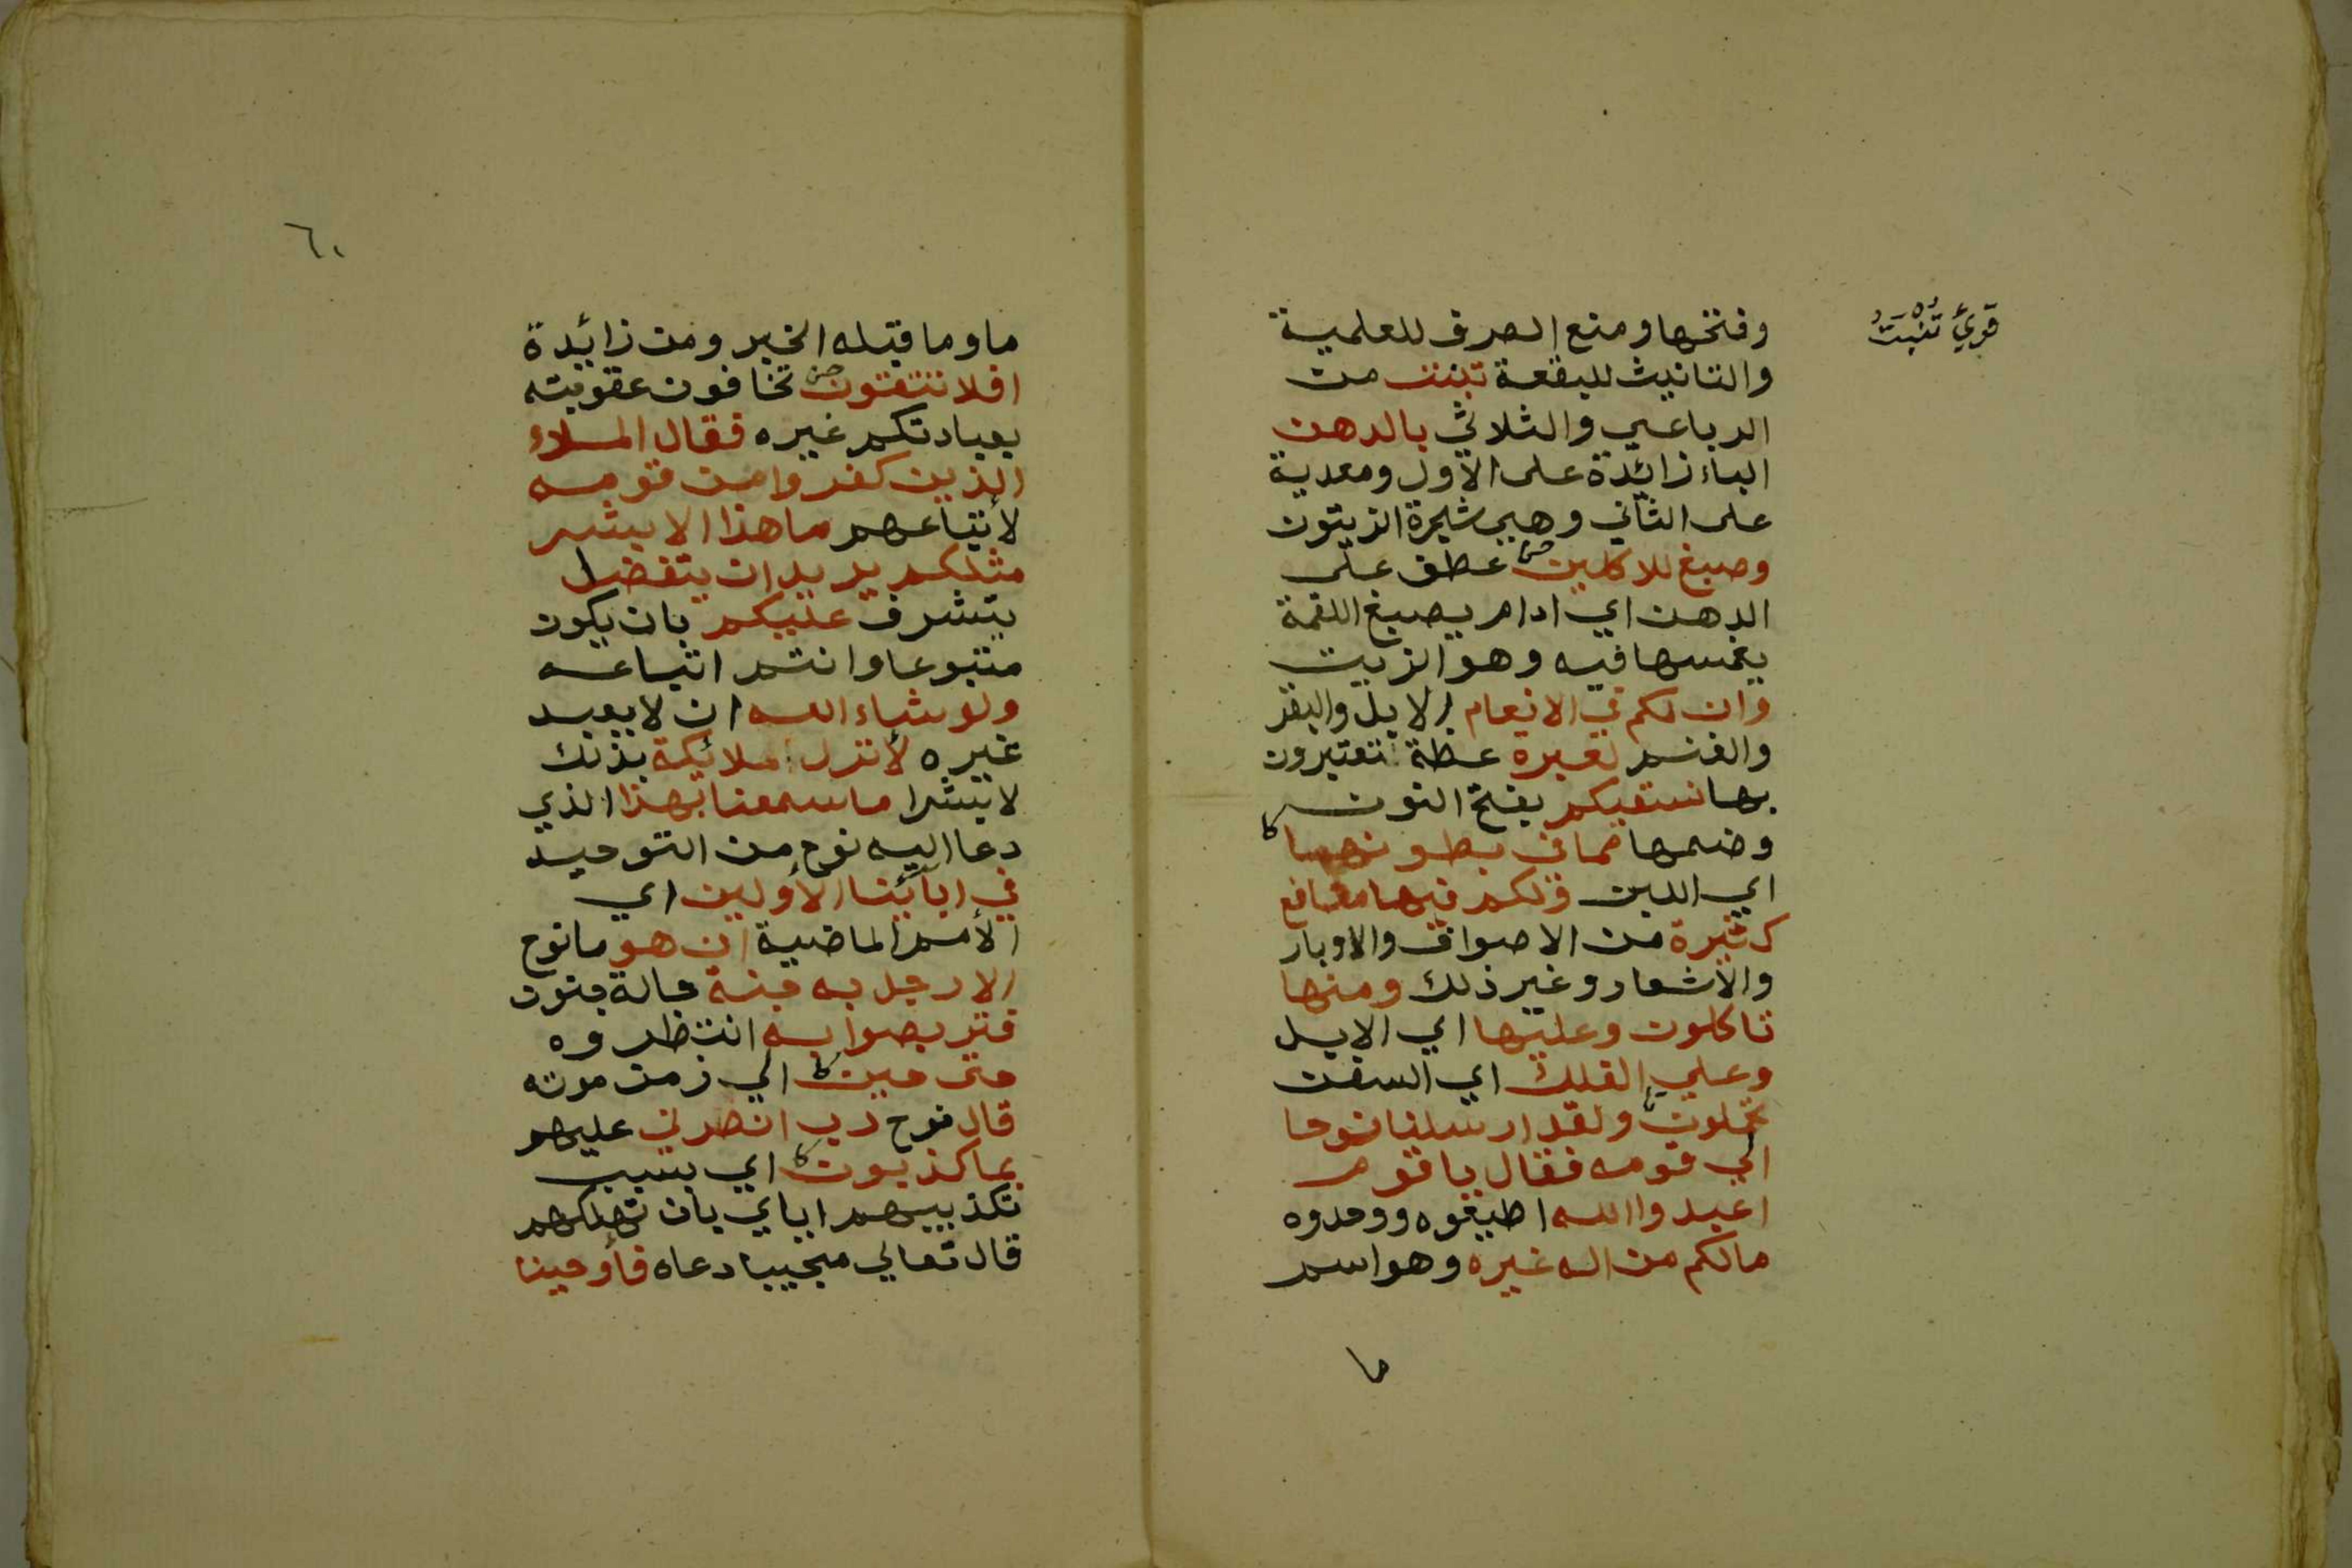 قرئ تنبت
وفتحها ومنع الصرف للعلمية
والتانيث للبقعة تنبت من
الرباعي والثلاثي بالدهن
الباء زائدة على الاول ومعدية
على الثاني وهي شجرة الزيتون
وصبغ للاكلين عطف على
الدهن اي ادام يصبغ اللقمة
بغمسها فيه وهو الزيت
وان لكم في الانعام الابل والبقر
والغنم لعبرة عظة تعتبرون
بها نسقيكم بفتح النون
وضمها مما في بطونها
اي اللبن ولكم فيها منافع
كثيرة من الاصواف والاوبار
والاشعار وغير ذلك ومنها
تاكلون وعليها اي الابل
وعلي الفلك اي السفن
تحملون ولقد ارسلنا نوحا
الي قومه فقال يا قوم
اعبدوا الله اطيعوه ووحدوه
مالكم من اله غيره وهو اسم
ما
٦٠
ما وما قبله الخبر ومن زائدة
افلا تتقون تخافون عقوبته
بعبادتكم غيره فقال الملاء
الذين كفروا من قومه
لأتباعهم ما هذا الا بشر
مثلكم يريد ان يتفضل
يتشرف عليكم بان يكون
متبوعا وانتم اتباعه
ولو شاء الله ان لا يعبد
غيره لأنزل ملائكة بذلك
لا بشرا ما سمعنا بهذا الذي
دعا اليه نوح من التوحيد
في ابائنا الأولين اي
الأمم الماضية ان هو ما نوح
الا رجل به جنة حالة جنون
فتربصوا به انتظروه
حتى حين الي زمن موته
قال نوح رب انصرني عليهم
بما كذبون اي بسبب
تكذيبهم اياي بان تهلكهم
قال تعالي مجيبا دعاه فأوحينا